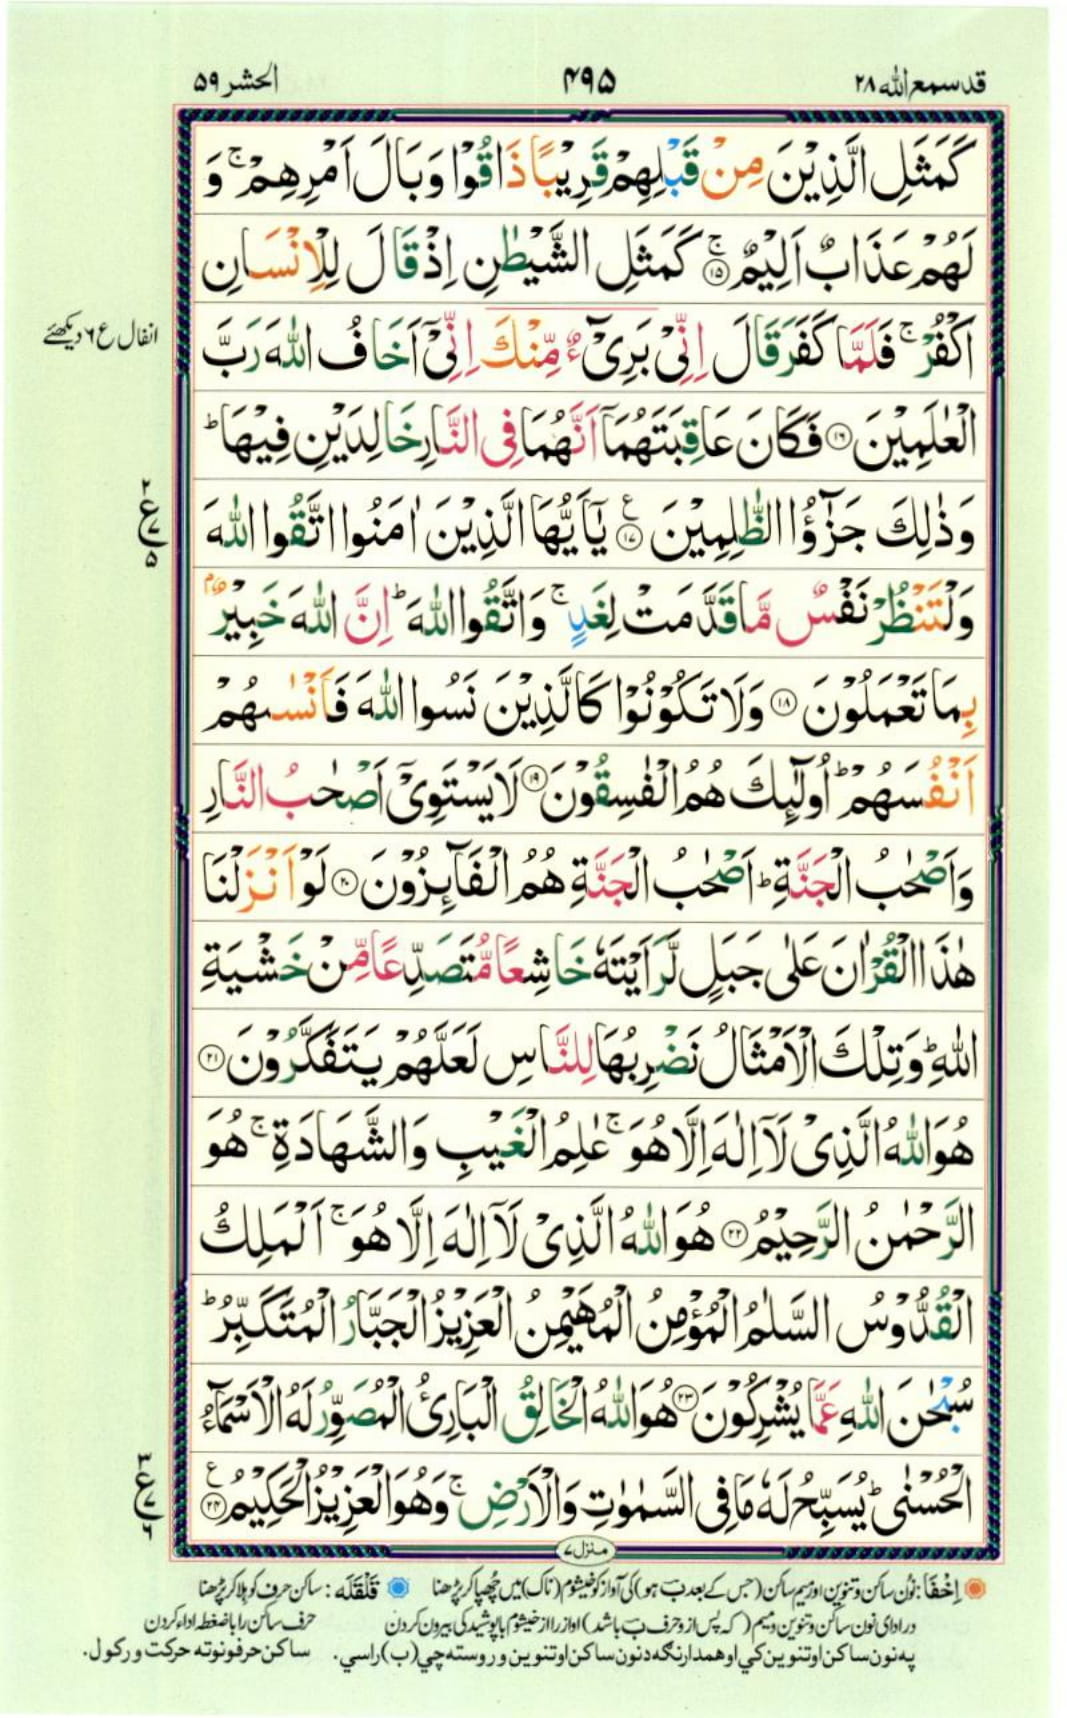 قد سمع الله ۲۸
۴۹۵
الحشر ۵۹
كَمَثَلِ الَّذِيْنَ مِنْ قَبْلِهِمْ قَرِيْبًا ذَاقُوْا وَبَالَ اَمْرِهِمْ ۚ وَ
لَهُمْ عَذَابٌ اَلِيْمٌ ۚ ۱۵ كَمَثَلِ الشَّيْطٰنِ اِذْ قَالَ لِلْاِنْسَانِ
اكْفُرْ ۚ فَلَمَّا كَفَرَ قَالَ اِنِّىْ بَرِىْٓءٌ مِّنْكَ اِنِّىْٓ اَخَافُ اللّٰهَ رَبَّ
انفال ع ۶ دیکھئے
الْعٰلَمِيْنَ ۱۶ فَكَانَ عَاقِبَتَهُمَآ اَنَّهُمَا فِى النَّارِ خَالِدَيْنِ فِيْهَا ؕ
وَذٰلِكَ جَزٰٓؤُا الظّٰلِمِيْنَ ۱۷ ع يٰٓاَيُّهَا الَّذِيْنَ اٰمَنُوا اتَّقُوا اللّٰهَ
۲ ع ۷ ۵
وَلْتَنْظُرْ نَفْسٌ مَّا قَدَّمَتْ لِغَدٍ ۚ وَاتَّقُوا اللّٰهَ ؕ اِنَّ اللّٰهَ خَبِيْرٌۢ
بِمَا تَعْمَلُوْنَ ۱۸ وَلَا تَكُوْنُوْا كَالَّذِيْنَ نَسُوا اللّٰهَ فَاَنْسٰىهُمْ
اَنْفُسَهُمْ ؕ اُولٰٓئِكَ هُمُ الْفٰسِقُوْنَ ۱۹ لَا يَسْتَوِىْٓ اَصْحٰبُ النَّارِ
وَاَصْحٰبُ الْجَنَّةِ ؕ اَصْحٰبُ الْجَنَّةِ هُمُ الْفَآئِزُوْنَ ۲۰ لَوْ اَنْزَلْنَا
هٰذَا الْقُرْاٰنَ عَلٰى جَبَلٍ لَّرَاَيْتَهٗ خَاشِعًا مُّتَصَدِّعًا مِّنْ خَشْيَةِ
اللّٰهِ ؕ وَتِلْكَ الْاَمْثَالُ نَضْرِبُهَا لِلنَّاسِ لَعَلَّهُمْ يَتَفَكَّرُوْنَ ۲۱
هُوَ اللّٰهُ الَّذِىْ لَآ اِلٰهَ اِلَّا هُوَ ۚ عٰلِمُ الْغَيْبِ وَالشَّهَادَةِ ۚ هُوَ
الرَّحْمٰنُ الرَّحِيْمُ ۲۲ هُوَ اللّٰهُ الَّذِىْ لَآ اِلٰهَ اِلَّا هُوَ ۚ اَلْمَلِكُ
الْقُدُّوْسُ السَّلٰمُ الْمُؤْمِنُ الْمُهَيْمِنُ الْعَزِيْزُ الْجَبَّارُ الْمُتَكَبِّرُ ؕ
سُبْحٰنَ اللّٰهِ عَمَّا يُشْرِكُوْنَ ۲۳ هُوَ اللّٰهُ الْخَالِقُ الْبَارِئُ الْمُصَوِّرُ لَهُ الْاَسْمَآءُ
الْحُسْنٰى ؕ يُسَبِّحُ لَهٗ مَا فِى السَّمٰوٰتِ وَالْاَرْضِ ۚ وَهُوَ الْعَزِيْزُ الْحَكِيْمُ ۲۴ ع
۳ ع ۷ ۶
منزل ۷
اِخْفَا: نُون ساکن و تنوین اور میم ساکن (جس کے بعد بَ ہو) کی آواز کو خیشوم (ناک) میں چُھپا کر پڑھنا
قَلْقَلَه: ساکن حرف کو ہلا کر پڑھنا
در ادای نون ساکن و تنوین و میم (که پس از و حرف بَ باشد) اواز را از خیشوم با پوشیدگی بیرون کردن
حرف ساکن را با ضغطه اداء کردن
په نون ساکن او تنوین کي او همدا رنگه د نون ساکن او تنوین و روسته چي (ب) راسي.
ساکن حرفونو ته حرکت ورکول.